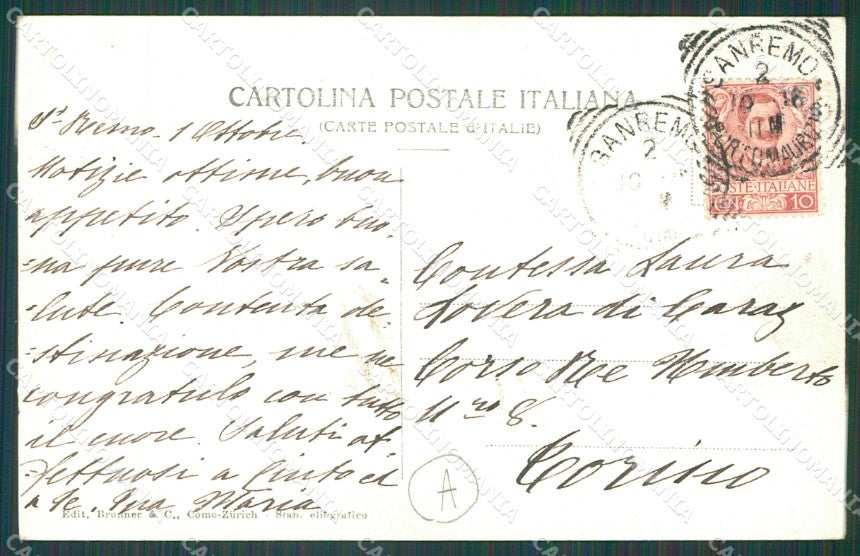 CARTOLINA POSTALE ITALIANA
(CARTE POSTALE d'ITALIE)
Sn Remo - 1 Ottobre.
Notizie ottime, buon
appetito. Spero buo-
-na pure Vostra sa-
-lute. Contenta de-
-stinazione, me ne
congratulo con tutto
il cuore. Saluti af
-fettuosi a Cinto ed
a Te. Tua Maria
Edit. Brunner & C., Como-Zürich - Stab. eliografico
SANREMO
2
10
SANREMO
2
10 16
PORTO MAURIZIO
POSTE ITALIANE
10
Contessa Laura
Lovera di Caray
Corso Re Umberto
No 8.
Torino
A
CARTOLINOMANIA